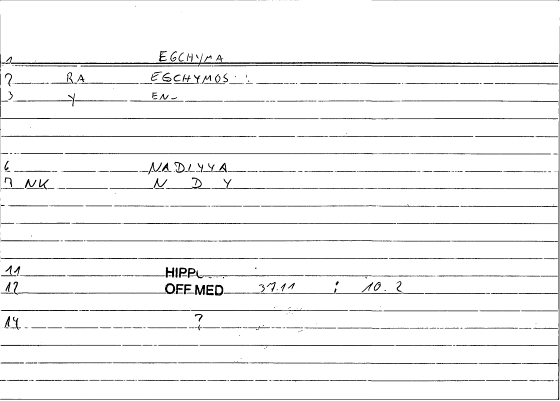 1 EGCHYMA
2 RA EGCHYMOS :
3 Y EN-
6 NADIYYA
7 NK N D Y
11 HIPP
12 OFF MED 37.11 : 10. 2
14 ?